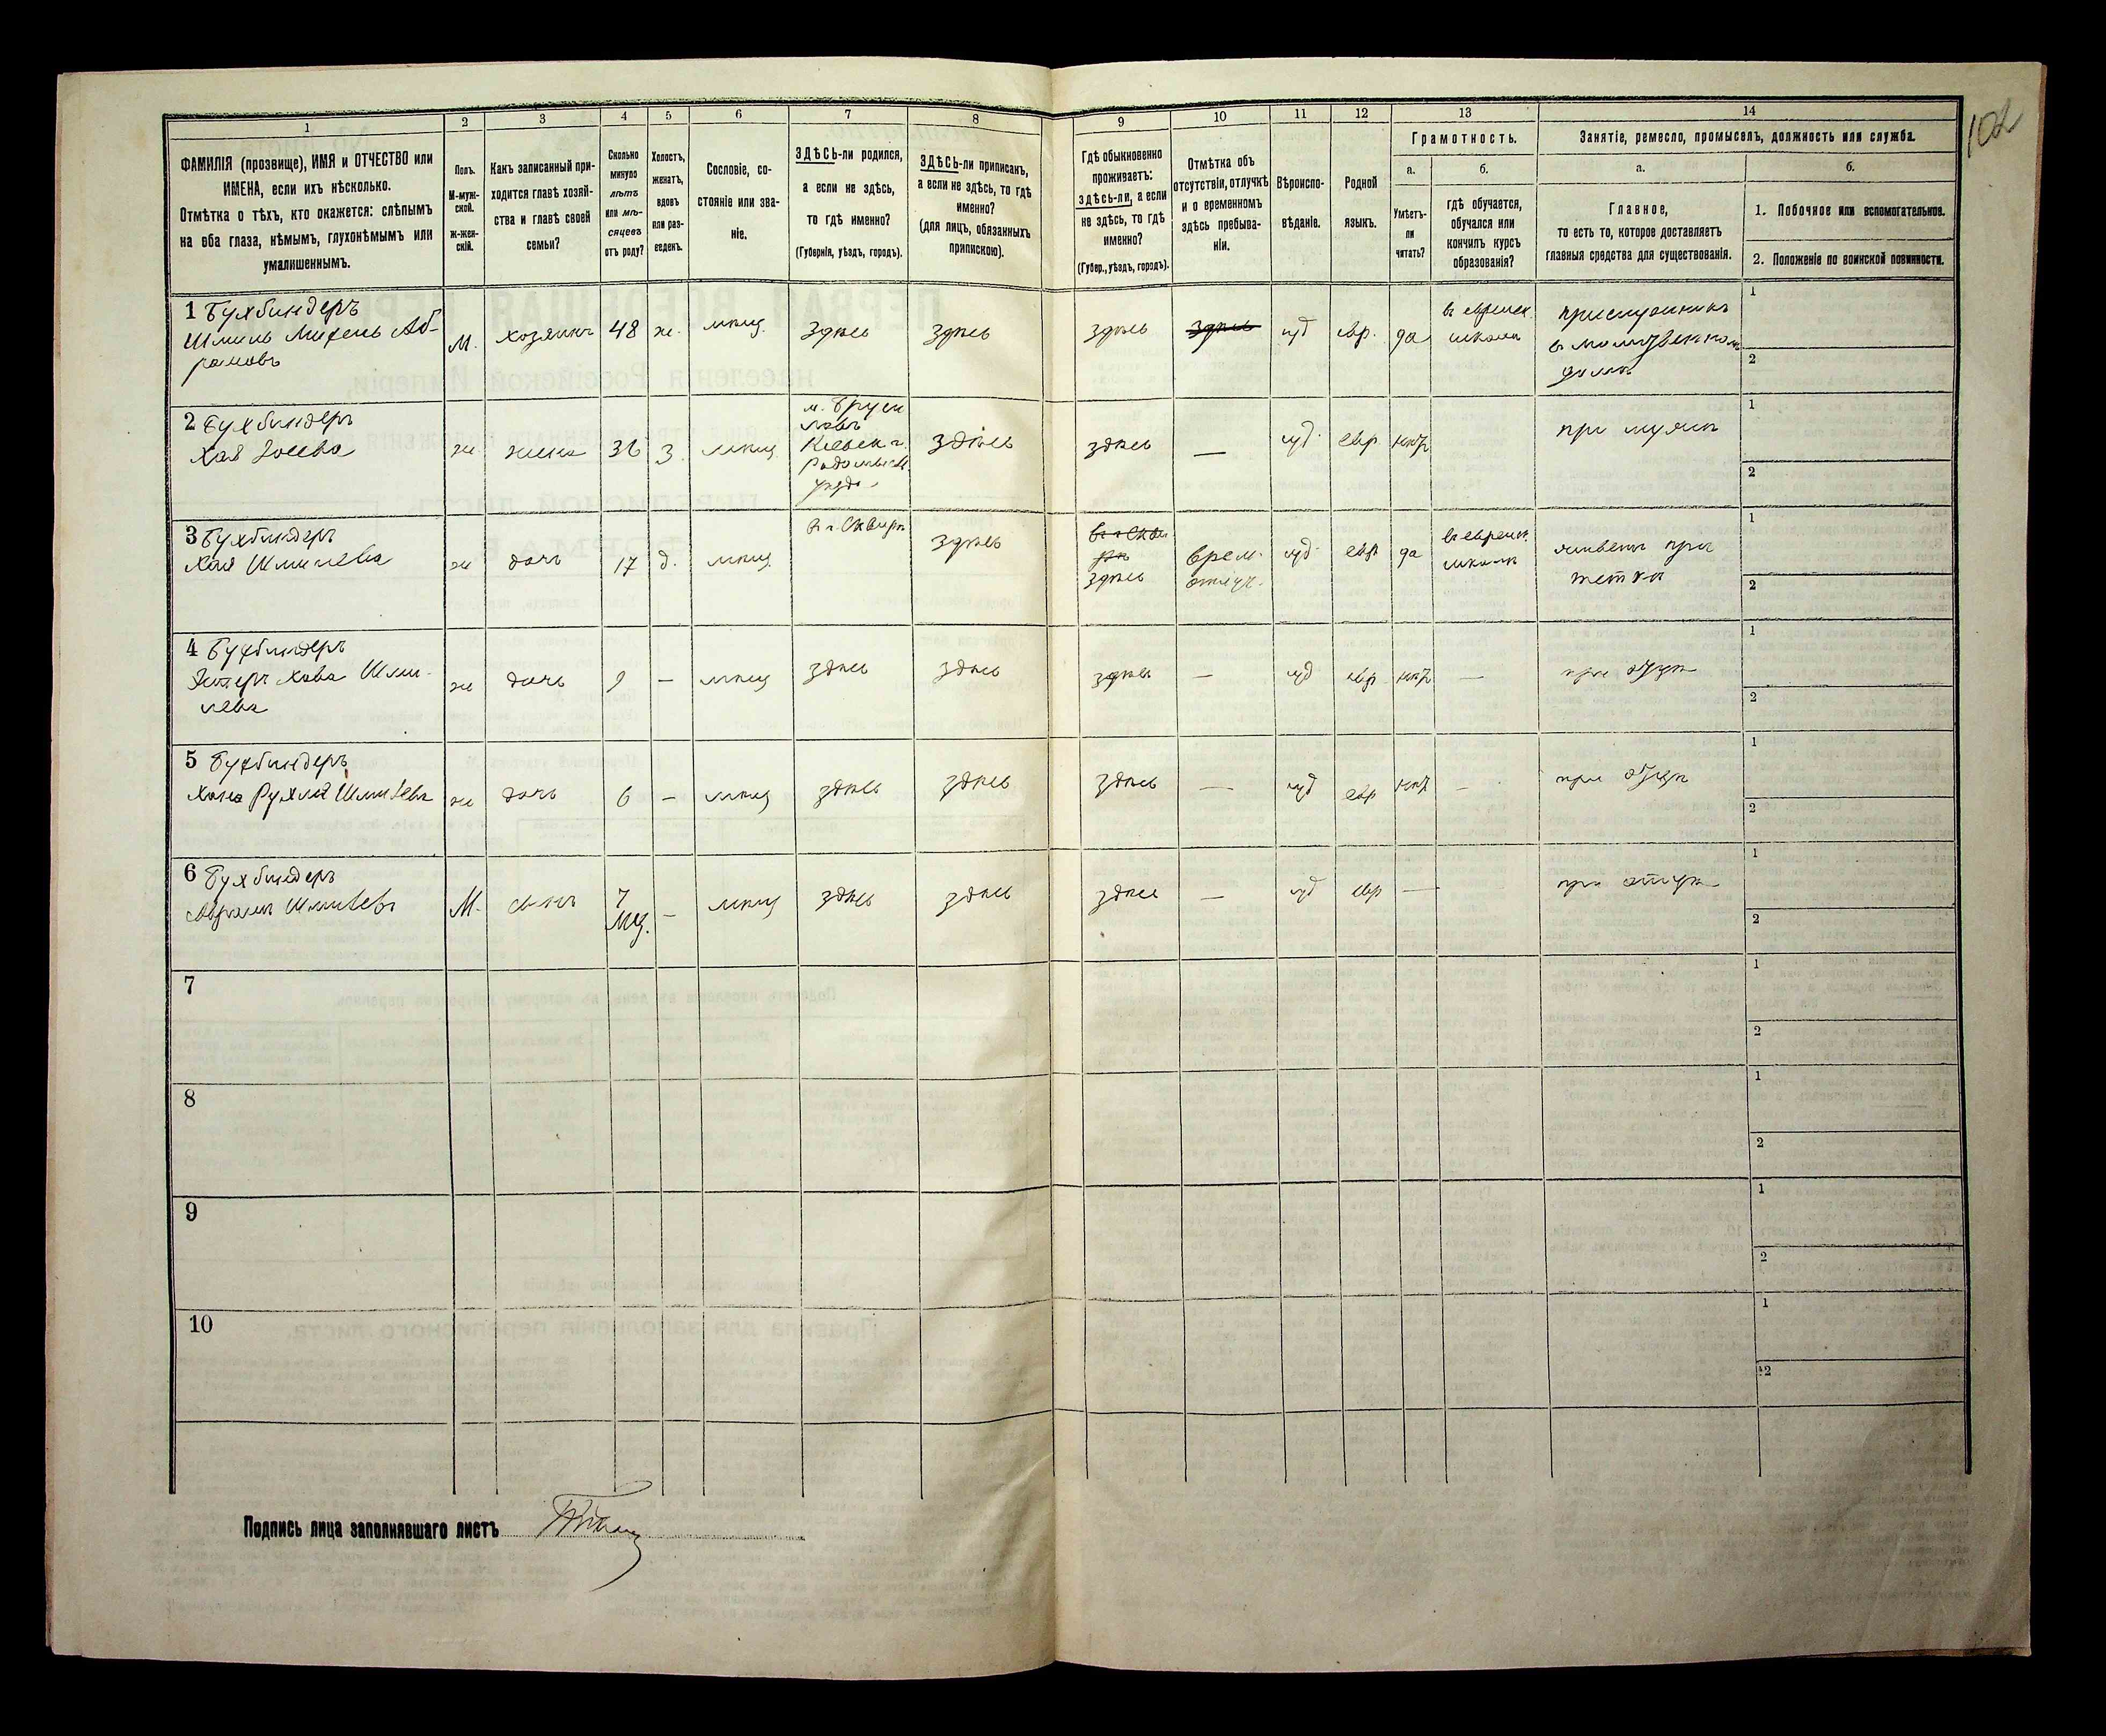 102
1
2
3
4
5
6
7
8
9
10
11
12
13
14
ФАМИЛІЯ (прозвище), ИМЯ и ОТЧЕСТВО или
ИМЕНА, если ихъ нѣсколько.
Отмѣтка о тѣхъ, кто окажется: слѣпымъ
на оба глаза, нѣмымъ, глухонѣмымъ или
умалишеннымъ.
Полъ.
М-муж-
ской.
Ж-жен-
скій.
Какъ записанный при-
ходится главѣ хозяй-
ства и главѣ своей
семьи?
Сколько
минуло
лѣтъ
или мѣ-
сяцевъ
отъ роду?
Холостъ,
женатъ,
вдовъ
или раз-
веденъ.
Сословіе, со-
стояніе или зва-
ніе.
ЗДѢСЬ-ли родился,
а если не здѣсь,
то гдѣ именно?
(Губернія, уѣздъ, городъ).
ЗДѢСЬ-ли приписанъ,
а если не здѣсь, то гдѣ
именно?
(для лицъ, обязанныхъ
припискою).
Гдѣ обыкновенно
проживаетъ:
здѣсь-ли, а если
не здѣсь, то гдѣ
именно?
(Губер., уѣздъ, городъ).
Отмѣтка объ
отсутствіи, отлучкѣ
и о временномъ
здѣсь пребыва-
ніи.
Вѣроиспо-
вѣданіе.
Родной
языкъ.
Грамотность.
а.
Умѣетъ-
ли
читать?
б.
гдѣ обучается,
обучался или
кончилъ курсъ
образованія?
Занятіе, ремесло, промыселъ, должность или служба.
а.
Главное,
то есть то, которое доставляетъ
главныя средства для существованія.
б.
1. Побочное или вспомогательное.
2. Положеніе по воинской повинности.
1 Бухбиндеръ
Шмиль Михель Аб-
рамовъ
М.
хозяинъ
48
ж.
мѣщ.
здѣсь
здѣсь
здѣсь
здѣсь
іуд
евр.
да
въ еврейск.
школѣ
прислужникъ
въ молитвенномъ
домѣ
1
2
2 Бухбиндеръ
Хая
ж
жена
36
З.
мѣщ
м. Бруси
ловъ
Кіевск. г.
Радомысл.
уѣзда
здѣсь
здѣсь
—
іуд.
евр
нѣтъ
при мужѣ
1
2
3 Бухбиндеръ
Хая Шмилева
ж
дочь
17
д.
мѣщ.
въ г. Сквирѣ
здѣсь
въ г. Скви
рѣ
здѣсь
врем.
отлуч.
іуд.
евр
да
въ еврейск.
школѣ
живетъ при
теткѣ
1
2
4 Бухбиндеръ
Эстеръ Хава Шми-
лева
ж
дочь
9
—
мѣщ
здѣсь
здѣсь
здѣсь
—
іуд
евр
нѣтъ
—
при отцѣ
1
2
5 Бухбиндеръ
Хана Рухля Шмилева
ж
дочь
6
—
мѣщ
здѣсь
здѣсь
здѣсь
—
іуд
евр
нѣтъ
—
при отцѣ
1
2
6 Бухбиндеръ
Абрамъ Шмилевъ
М.
сынъ
7
мц.
—
мѣщ
здѣсь
здѣсь
здѣсь
—
іуд
евр
—
при отцѣ
1
2
7
1
2
8
1
2
9
1
2
10
1
2
Подпись лица заполнявшаго листъ